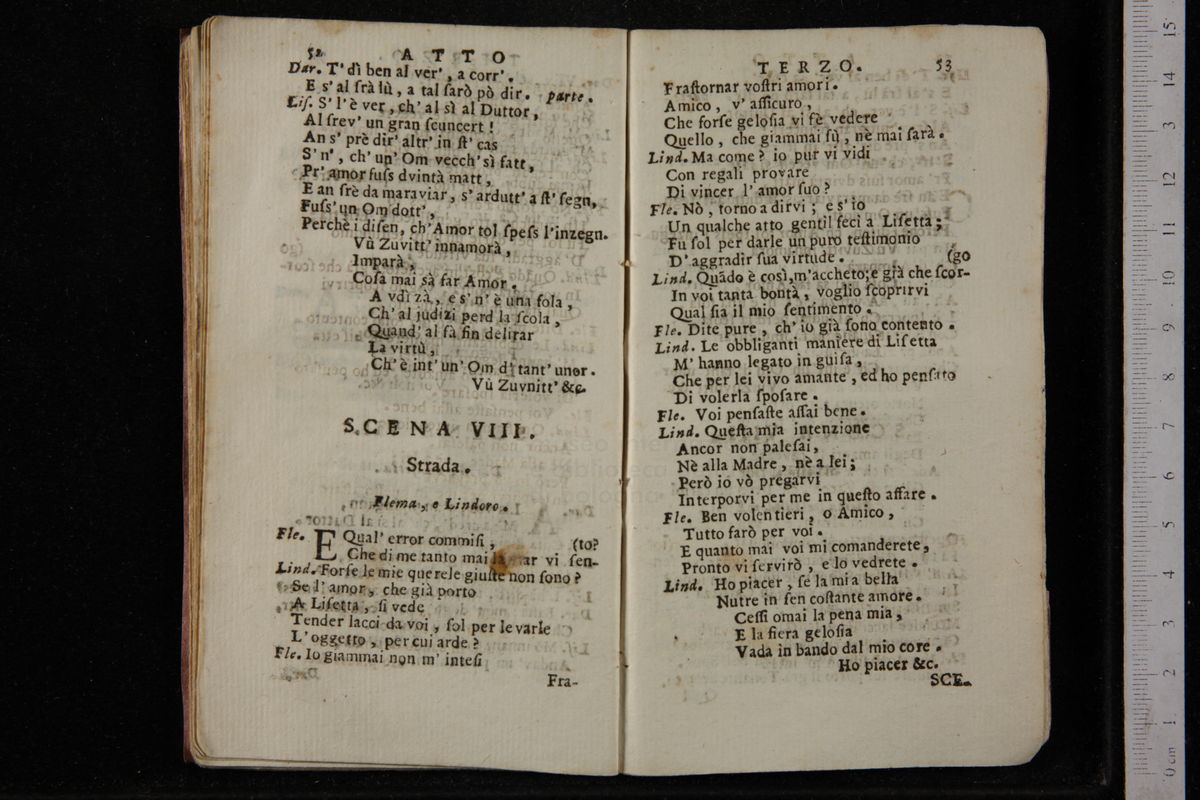 52 ATTO
Dar. T' dì ben al ver', a corr'.
E s' al srà lù, a tal sarò pò dir. parte.
Lis. S' l'è ver, ch' al sì al Duttor,
Al srev' un gran scuncert!
An s' prè dir' altr' in st' cas
S' n', ch' un' Om vecch' sì fatt,
Pr' amor fuss dvintà matt,
E an srè da maraviar, s' ardutt' a st' segn,
Fuss' un Om dott',
Perchè i disen, ch' Amor tol spess l'inzegn.
Vù Zuvitt' innamorà,
Imparà,
Cosa mai sà far Amor.
A vdì zà, e s' n' è una sola,
Ch' al judizi perd la scola,
Quand' al fà fin delirar
La virtù,
Ch' è int' un' Om d' tant' unor.
Vù Zuvnitt' &c.
SCENA VIII.
Strada.
Flema, e Lindoro.
Fle. E Qual' error commisi, (to?
Che di me tanto mai ar vi sen-
Lind. Forse le mie querele giuste non sono?
Se l' amor, che già porto
A Lisetta, si vede
Tender lacci da voi, sol per levarle
L' oggetto, per cui arde?
Fle. Io giammai non m' intesi
Fra-
TERZO. 53
Frastornar vostri amori.
Amico, v' assicuro,
Che forse gelosia vi fè vedere
Quello, che giammai fù, nè mai sarà.
Lind. Ma come? io pur vi vidi
Con regali provare
Di vincer l' amor suo?
Fle. Nò, torno a dirvi; e s' io
Un qualche atto gentil feci a Lisetta;
Fu sol per darle un puro testimonio
D' aggradir sua virtude. (go
Lind. Quãdo è così, m'accheto; e già che scor-
In voi tanta bontà, voglio scoprirvi
Qual sia il mio sentimento.
Fle. Dite pure, ch' io già sono contento.
Lind. Le obbliganti maniere di Lisetta
M' hanno legato in guisa,
Che per lei vivo amante, ed ho pensato
Di volerla sposare.
Fle. Voi pensaste assai bene.
Lind. Questa mia intenzione
Ancor non palesai,
Nè alla Madre, nè a lei;
Però io vò pregarvi
Interporvi per me in questo affare.
Fle. Ben volentieri, o Amico,
Tutto farò per voi.
E quanto mai voi mi comanderete,
Pronto vi servirò, e lo vedrete.
Lind. Ho piacer, se la mia bella
Nutre in sen costante amore.
Cessi omai la pena mia,
E la fiera gelosia
Vada in bando dal mio core.
Ho piacer &c.
SCE-